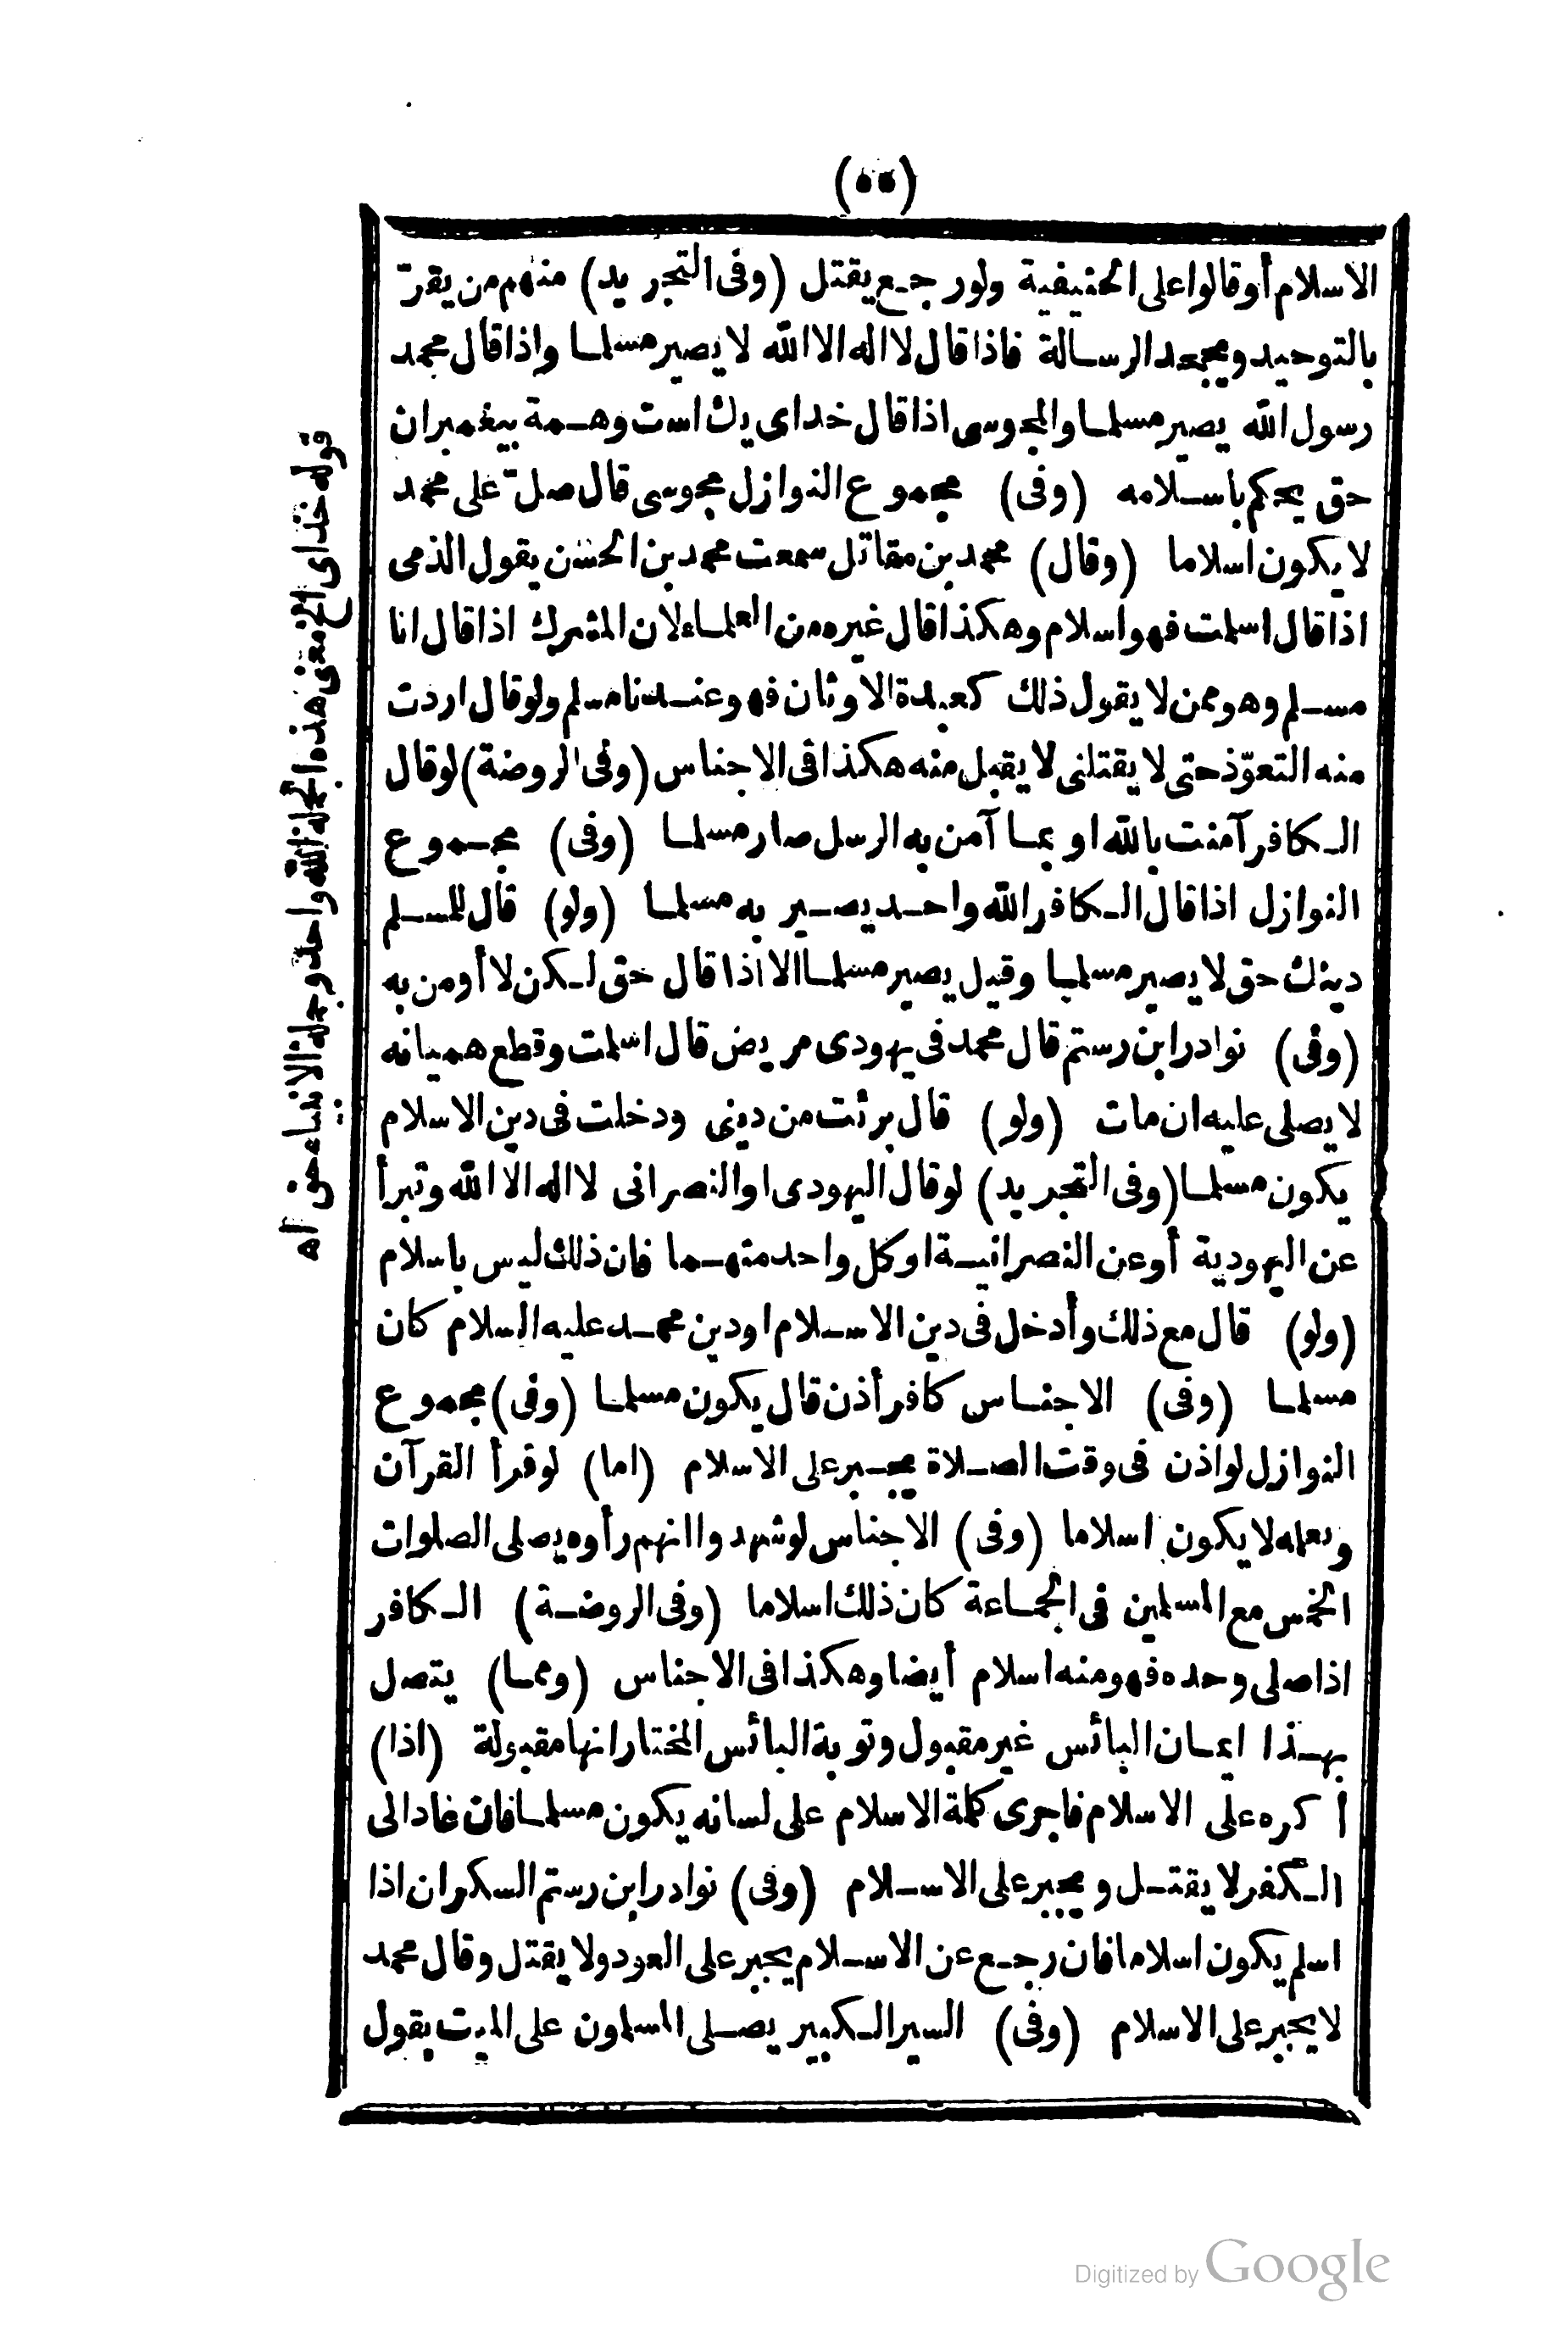 (٥٥)
الاسلام أو قالوا على الحنيفية ولو رجع يقتل (وفى التجريد) منهم من يقرّ
بالتوحيد ويجحد الرسالة فاذا قال لا اله الا الله لا يصير مسلما واذا قال محمد
رسول الله يصير مسلما والمجوسى اذا قال خداى يك است وهمة بيغمبران
حق يحكم باسلامه (وفى) مجموع النوازل مجوسى قال صلّ على محمد
لا يكون اسلاما (وقال) محمد بن مقاتل سمعت محمد بن الحسن يقول الذمى
اذا قال اسلمت فهو اسلام وهكذا قال غيره من العلماء لان المشرك اذا قال انا
مسلم وهو ممن لا يقول ذلك كعبدة الاوثان فهو عندنا مسلم ولو قال اردت
منه التعوّذ حتى لا يقتلنى لا يقبل منه هكذا فى الاجناس (وفى الروضة) لو قال
الكافر آمنت بالله او بما آمن به الرسل صار مسلما (وفى) مجموع
النوازل اذا قال الكافر الله واحد يصير به مسلما (ولو) قال للمسلم
دينك حق لا يصير مسلما وقيل يصير مسلما الا اذا قال حق لكن لا أومن به
(وفى) نوادر ابن رستم قال محمد فى يهودى مريض قال اسلمت وقطع هميانه
لا يصلى عليه ان مات (ولو) قال برئت من دينى ودخلت فى دين الاسلام
يكون مسلما (وفى التجريد) لو قال اليهودى او النصرانى لا اله الا الله وتبرأ
عن اليهودية أو عن النصرانية او كل واحد منهما فان ذلك ليس باسلام
(ولو) قال مع ذلك وأدخل فى دين الاسلام او دين محمد عليه السلام كان
مسلما (وفى) الاجناس كافر أذن قال يكون مسلما (وفى) مجموع
النوازل لو اذن فى وقت الصلاة يجبر على الاسلام (اما) لو قرأ القرآن
وتعلمه لا يكون اسلاما (وفى) الاجناس لو شهدوا انهم رأوه يصلى الصلوات
الخمس مع المسلمين فى الجماعة كان ذلك اسلاما (وفى الروضة) الكافر
اذا صلى وحده فهو منه اسلام أيضا وهكذا فى الاجناس (ومما) يتصل
بهذا ايمان البائس غير مقبول وتوبة البائس المختار انها مقبولة (اذا)
أكره على الاسلام فاجرى كلمة الاسلام على لسانه يكون مسلما فان عاد الى
الكفر لا يقتل ويجبر على الاسلام (وفى) نوادر ابن رستم السكران اذا
اسلم يكون اسلاما فان رجع عن الاسلام يجبر على العود ولا يقتل وقال محمد
لا يجبر على الاسلام (وفى) السير الكبير يصلى المسلمون على الميت بقول
قوله خداى الخ معنى هذه الجملة الله واحد وجملة الانبياء حق اه
Digitized by Google